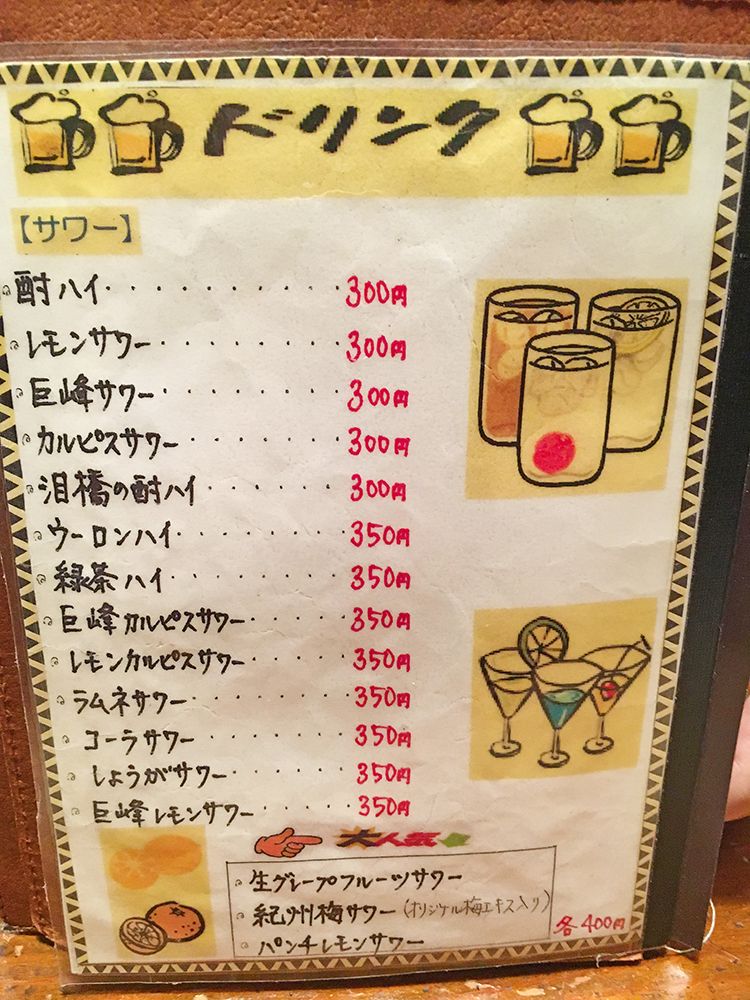 ドリンク
【サワー】
酎ハイ・・・・・・・・・・300円
レモンサワー・・・・・・・・300円
巨峰サワー・・・・・・・・300円
カルピスサワー・・・・・・・300円
泪橋の酎ハイ・・・・・・・300円
ウーロンハイ・・・・・・・・350円
緑茶ハイ・・・・・・・・350円
巨峰カルピスサワー・・・・・350円
レモンカルピスサワー・・・・・350円
ラムネサワー・・・・・・・350円
コーラサワー・・・・・・・350円
しょうがサワー・・・・・・350円
巨峰レモンサワー・・・・・350円
大人気
生グレープフルーツサワー
紀州梅サワー(オリジナル梅エキス入り)
パンチレモンサワー
各400円